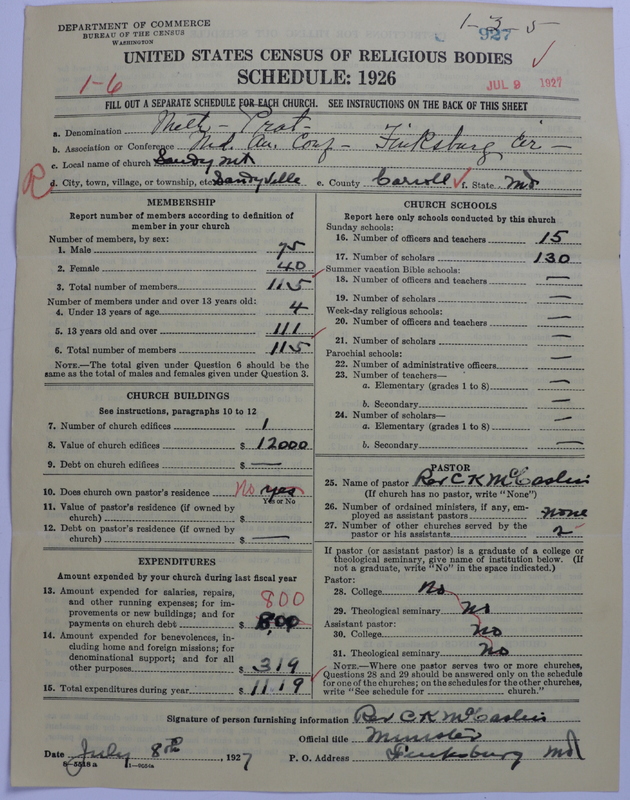 DEPARTMENT OF COMMERCE
BUREAU OF THE CENSUS
WASHINGTON
1-3-5
927
UNITED STATES CENSUS OF RELIGIOUS BODIES
SCHEDULE: 1926
1-6
JUL 9 1927
FILL OUT A SEPARATE SCHEDULE FOR EACH CHURCH. SEE INSTRUCTIONS ON THE BACK OF THIS SHEET
a. Denomination Meth- Prot-
b. Association or Conference Md. An. Conf - Finksburg Cir-
c. Local name of church Sandy Mt
R d. City, town, village, or township, etc. Sandyville e. County Carroll f. State Md
MEMBERSHIP
Report number of members according to definition of
member in your church
Number of members, by sex:
1. Male 75
2. Female 40
3. Total number of members 115
Number of members under and over 13 years old:
4. Under 13 years of age 4
5. 13 years old and over 111
6. Total number of members 115
NOTE.—The total given under Question 6 should be
same as the total of males and females given under Question 3.
CHURCH BUILDINGS
See instructions, paragraphs 10 to 12
7. Number of church edifices 1
8. Value of church edifices $ 12000
9. Debt on church edifices $ —
10. Does church own pastor's residence No yes
Yes or No
11. Value of pastor's residence (if owned by
church) $
12. Debt on pastor's residence (if owned by
church) $ —
EXPENDITURES
Amount expended by your church during last fiscal year
13. Amount expended for salaries, repairs,
and other running expenses; for im-
provements or new buildings; and for
payments on church debt $ 800
800
14. Amount expended for benevolences, in-
cluding home and foreign missions; for
denominational support; and for all
other purposes $ 319
15. Total expenditures during year $ 1119
CHURCH SCHOOLS
Report here only schools conducted by this church
Sunday schools:
16. Number of officers and teachers 15
17. Number of scholars 130
Summer vacation Bible schools:
18. Number of officers and teachers —
19. Number of scholars —
Week-day religious schools:
20. Number of officers and teachers —
21. Number of scholars —
Parochial schools:
22. Number of administrative officers —
23. Number of teachers—
a. Elementary (grades 1 to 8) —
b. Secondary —
24. Number of scholars—
a. Elementary (grades 1 to 8) —
b. Secondary —
PASTOR
25. Name of pastor Rev C K McCaslin
(If church has no pastor, write "None")
26. Number of ordained ministers, if any, em-
ployed as assistant pastors none
27. Number of other churches served by the
pastor or his assistants 2
If pastor (or assistant pastor) is a graduate of a college or
theological seminary, give name of institution below. (If
not a graduate, write "No" in the space indicated.)
Pastor:
28. College No
29. Theological seminary No
Assistant pastor:
30. College No
31. Theological seminary No
NOTE.—Where one pastor serves two or more churches,
Questions 28 and 29 should be answered only on the schedule
for one of the churches; on the schedules for the other churches,
write "See schedule for church."
Signature of person furnishing information Rev C K McCaslin
Official title Minister
Date July 8th, 1927 P. O. Address Finksburg Md